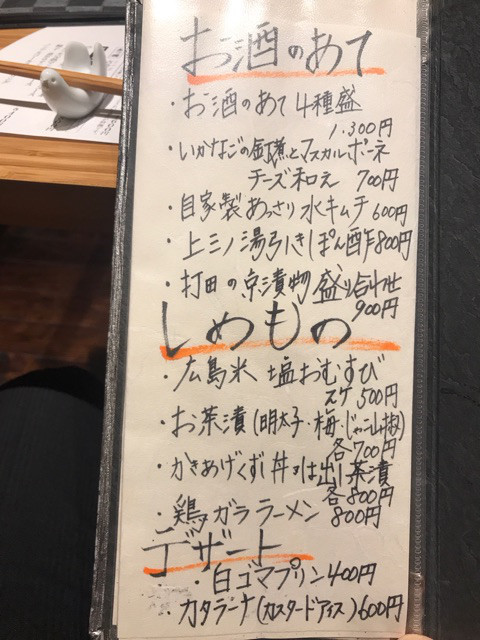 お酒のあて
・お酒のあて4種盛
1.300円
・いかなごの釘煮とマスカルポーネ
チーズ和え 700円
・自家製あっさり水キムチ600円
・上ミノ湯引きぽん酢800円
・打田の京漬物盛り合わせ
900円
しめもの
・広島米 塩おむすび
2ヶ500円
・お茶漬(明太子・梅・じゃこ山椒)
各700円
・かきあげくずし丼又は出し茶漬
各800円
・鶏ガララーメン 800円
デザート
・白ゴマプリン400円
・カタラーナ(カスタードアイス)600円